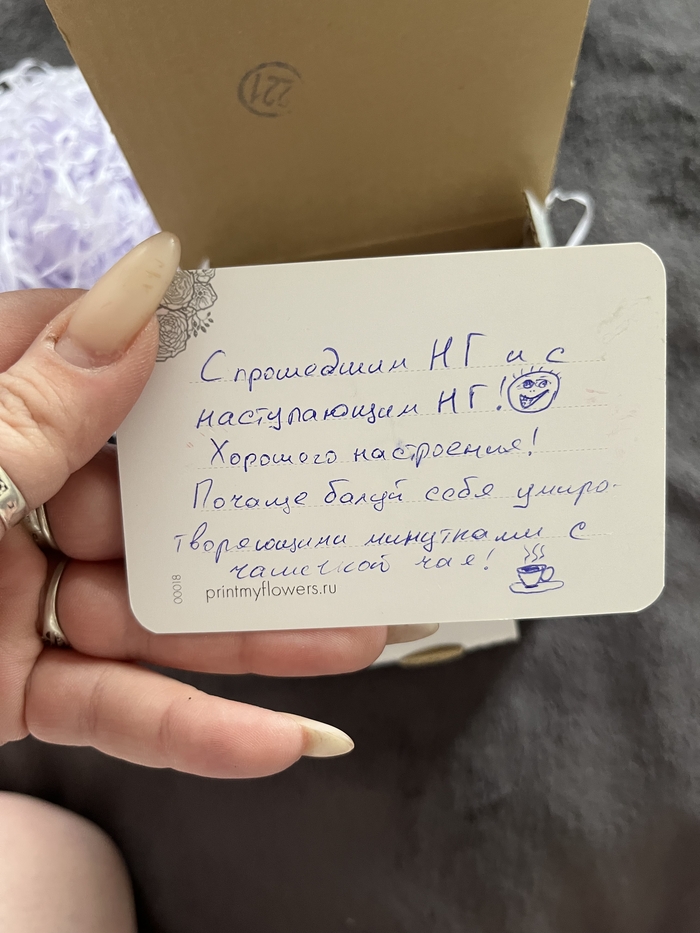 221
С прошедшим НГ и с
наступающим НГ!
Хорошего настроения!
Почаще балуй себя умиро-
творяющими минутками с
чашечкой чая!
00018
printmyflowers.ru